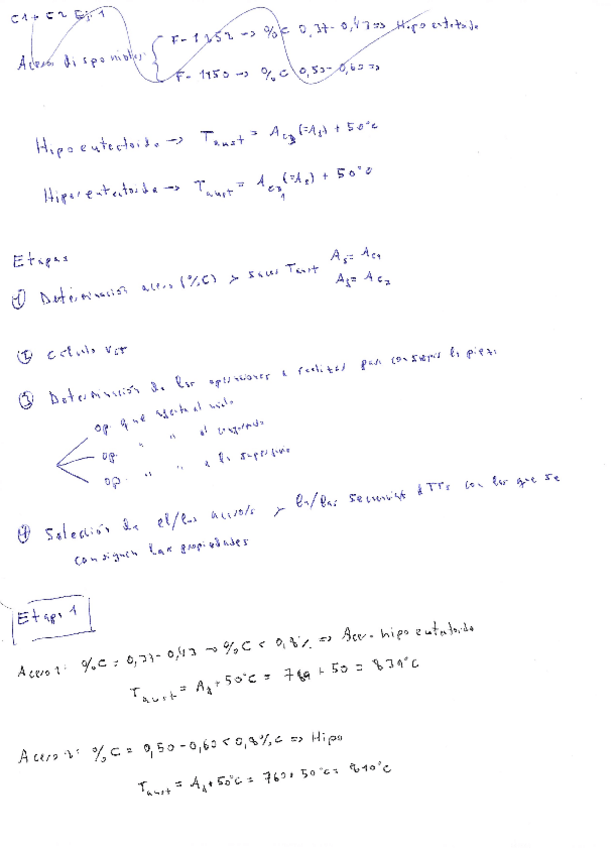 C1 + C2 Ej. 1
Aceros disponibles { F-1252 → %C 0,37-0,43 ⇒ Hipoeutectoide
F-1150 → %C 0,50-0,60 ⇒
Hipoeutectoide → Taust = Ac3 (=A3) + 50°C
Hipereutectoide → Taust = Ac1 + 50°C
Etapas
① Determinación acero (%C) y sacar Taust
② Cálculo
③ Determinación de las operaciones a realizar para conseguir la pieza
op que afecta al
op. " " al
op. " " a la superficie
④ Selección de el/los acero/s y la/las de TTs con los que se
consiguen las propiedades
Etapa 1
Acero 1: %C = 0,37-0,43 → %C < 0,8% ⇒ Acero hipoeutectoide
Taust = A3 + 50°C = 789 + 50 = 839°C
Acero 2: %C = 0,50-0,60 < 0,8%C ⇒ Hipo
Taust = A3 + 50°C = 760 + 50°C = 810°C